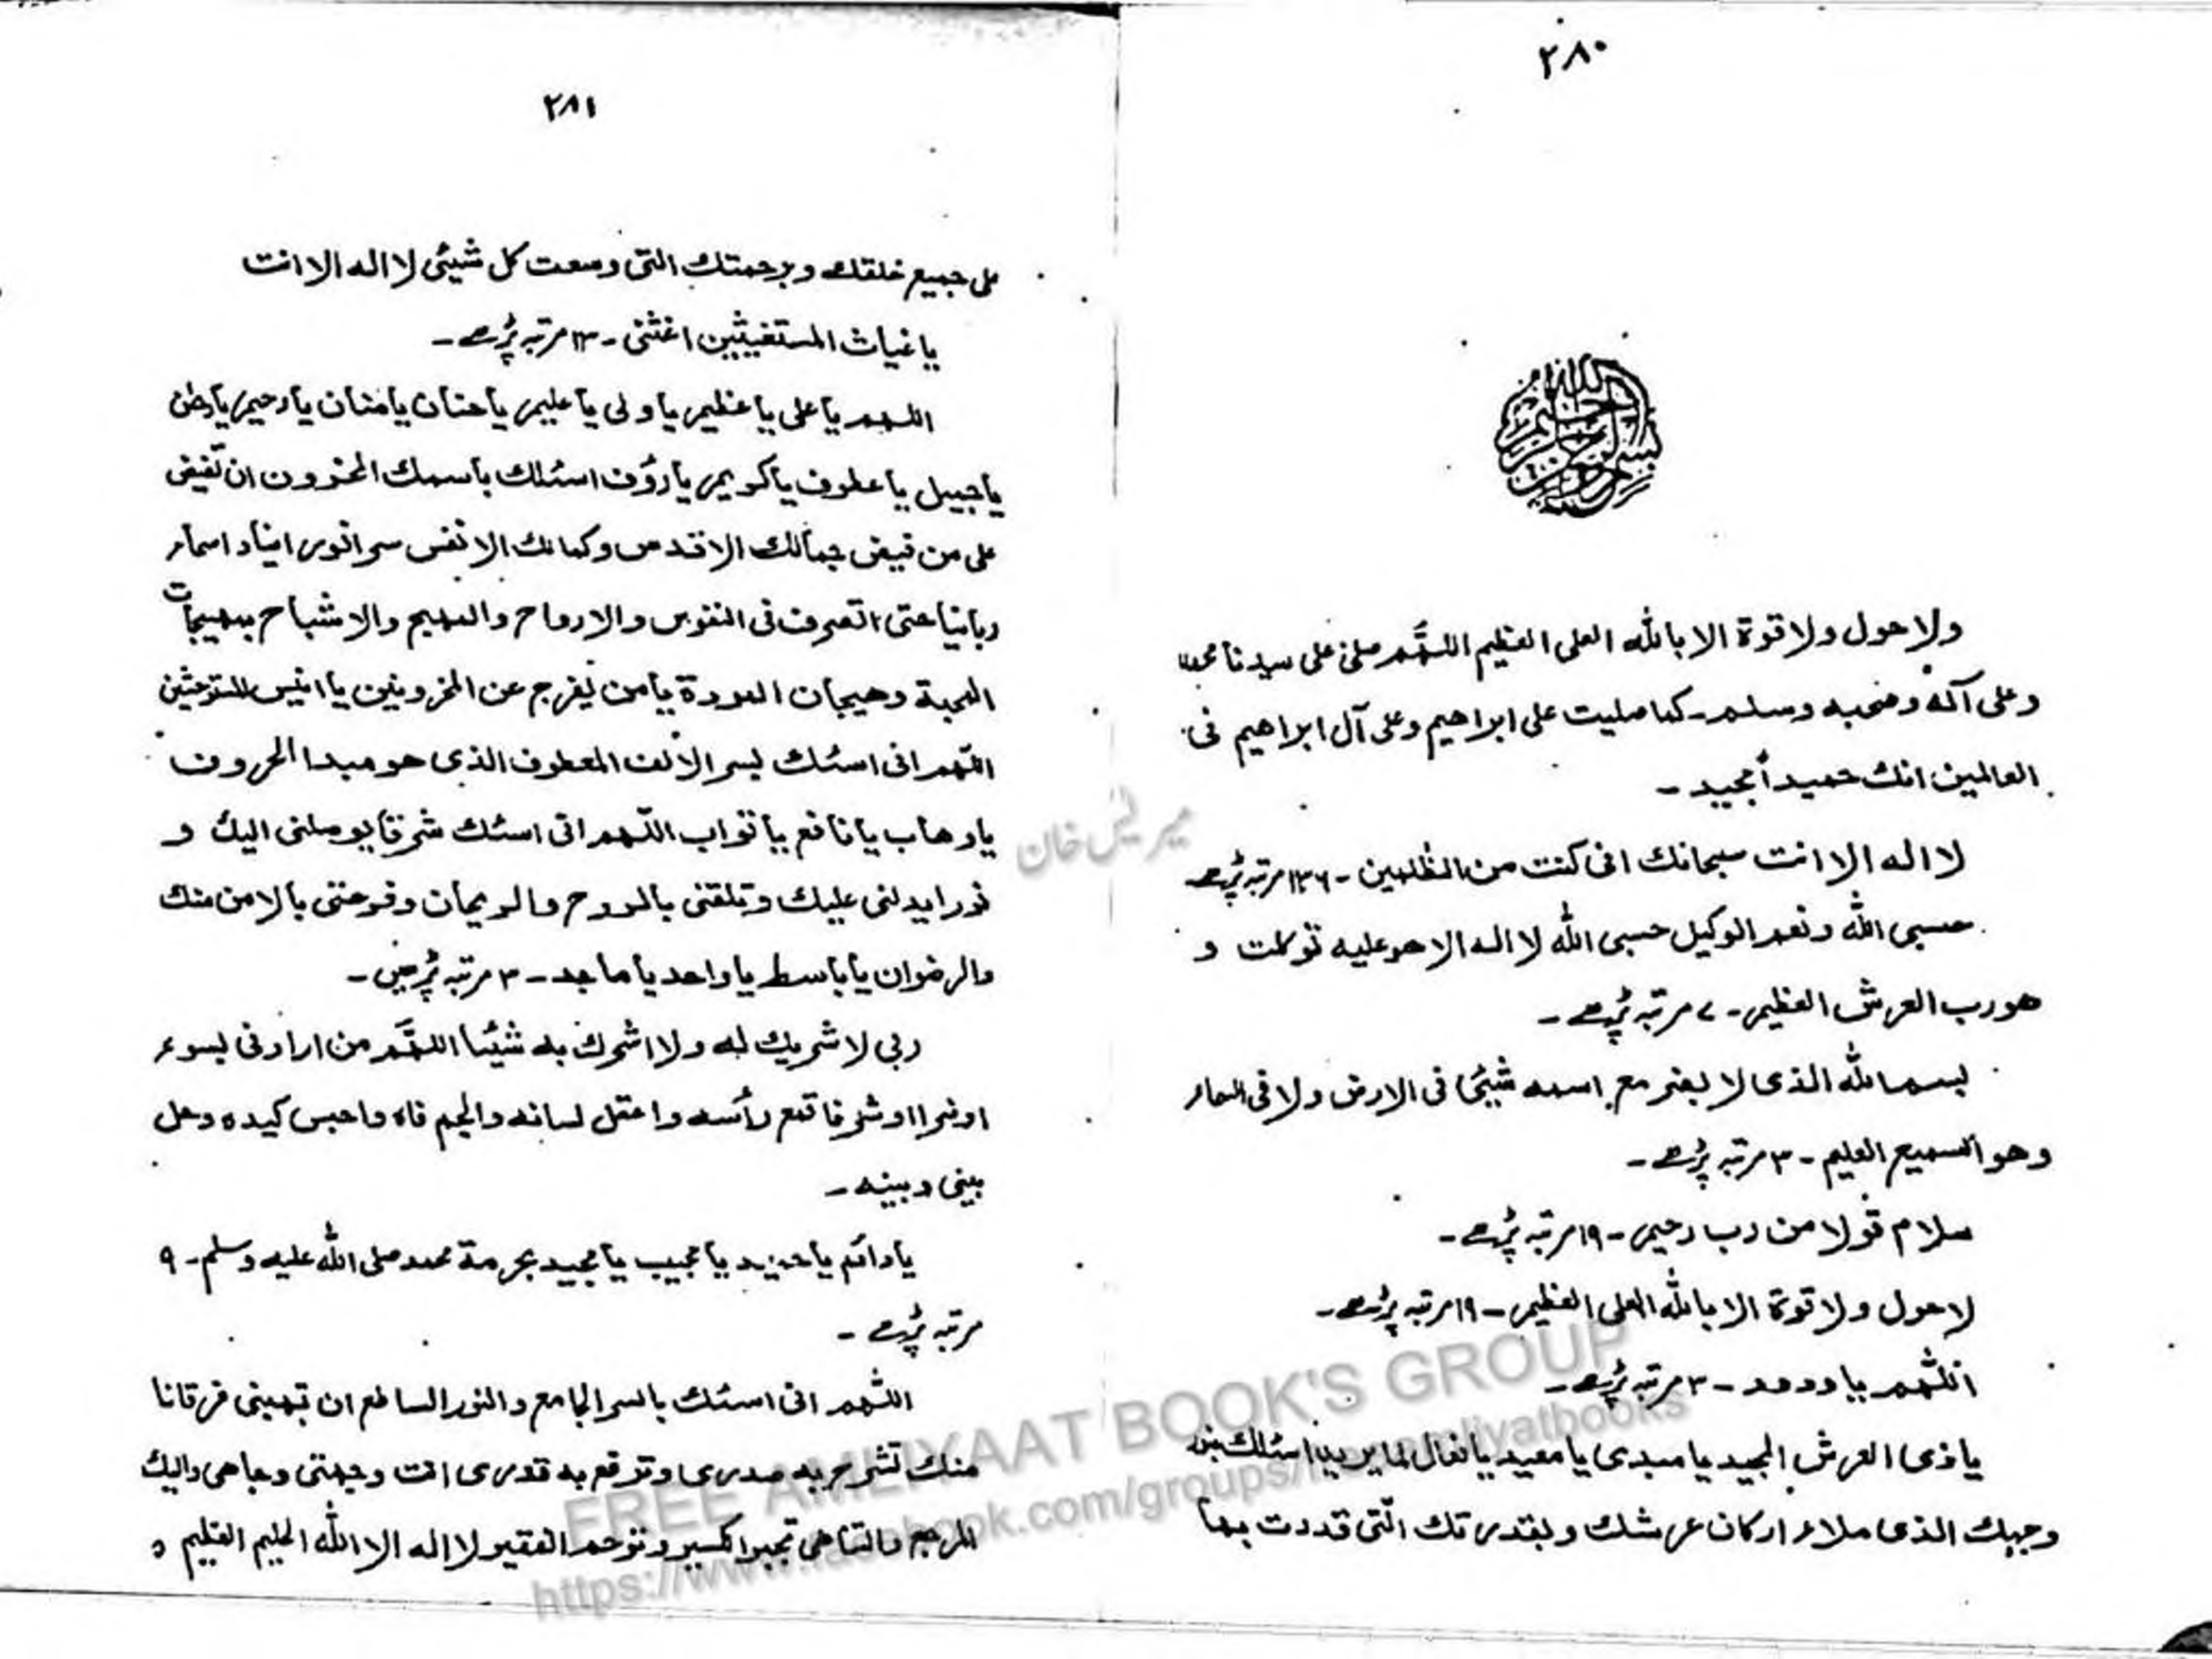 ٢٨٠
ولا حول ولا قوة الا بالله العلى العظيم اللهم صلى على سيدنا محمد
وعلى آله وصحبه وسلم ـ كما صليت على ابراهيم وعلى آل ابراهيم فى
العالمين انك حميد مجيد ـ
لا اله الا انت سبحانك انى كنت من الظلمين ـ ١٣٦ مرتبہ پڑھے
حسبى الله ونعم الوكيل حسبى الله لا اله الا هو عليه توكلت و
هو رب العرش العظيم ـ ٧ مرتبہ پڑھے ـ
بسم الله الذى لا يضر مع اسمه شيئى فى الارض ولا فى السماء
وهو السميع العليم ـ ٣ مرتبہ پڑھے ـ
سلام قولا من رب رحيم ـ ١٩ مرتبہ پڑھے ـ
لا حول ولا قوة الا بالله العلى العظيم ـ ١٩ مرتبہ پڑھے ـ
اللهم يا ودود ـ ٣ مرتبہ پڑھے ـ
يا ذى العرش المجيد يا مبدى يا معيد يا فعال لما يريد اسئلك بنور
وجهك الذى ملاء اركان عرشك وبقدرتك التى قدرت بها
٢٨١
على جميع خلقك وبرحمتك التى وسعت كل شيئى لا اله الا انت
يا غياث المستغيثين اغثنى ـ ١٣ مرتبہ پڑھے ـ
اللهم يا على يا عظيم يا ولى يا عليم يا حنان يا منان يا رحيم يا رحمٰن
يا جميل يا عطوف يا كريم يا رؤف اسئلك باسمك المخزون ان تفيض
على من فيض جمالك الاقدس وكمالك الانفس سر انور اسماء
حتى اتصرف فى النفوس والارواح والمهيج والاشباح بمهيجات
المحبة وهيجان المودة يا من يفرج عن المحزونين يا انيس المستوحشين
اللهم انى اسئلك بسر الالف المعطوف الذى هو مبدا الحروف
يا وهاب يا نافع يا تواب اللهم انى اسئلك شرقا يوصلنى اليك و
نورا يدلنى عليك وتلقنى بالروح والريحان وفرحتى بالامن منك
والرضوان يا باسط يا واحد يا ماجد ـ ٣ مرتبہ پڑھیں ـ
ربى لا شريك له ولا اشرك به شيئا اللهم من ارادنى بسوء
او ضرا او شر فاقمع رأسه واعقل لسانه والجم فاه واحبس كيده وحل
بينى وبينه ـ
يا دائم يا حميد يا مجيب يا مجيد بحرمة محمد صلى الله عليه وسلم ـ ٩
مرتبہ پڑھے ـ
اللهم انى اسئلك بالسر الجامع والنور الساطع ان تهبنى فرقانا
منك تشرح به صدرى وترفع به قدرى انت وجهتى وجاهى واليك
المرجع والتناهى تجبر الكسير وترحم الفقير لا اله الا الله الحليم العظيم ہ
میر رئیس خان
FREE AMLIYAAT BOOK'S GROUP
https://www.facebook.com/groups/freeamliyatbooks